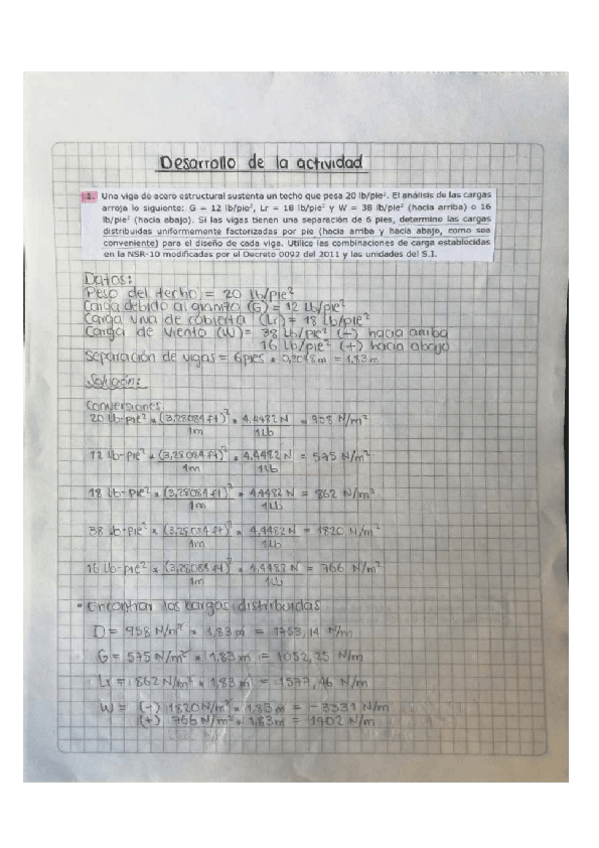 Desarrollo de la actividad
1. Una viga de acero estructural sustenta un techo que pesa 20 lb/pie². El análisis de las cargas
arroja lo siguiente: G = 12 lb/pie², Lr = 18 lb/pie² y W = 38 lb/pie² (hacia arriba) o 16
lb/pie² (hacia abajo). Si las vigas tienen una separación de 6 pies, determine las cargas
distribuidas uniformemente factorizadas por pie (hacia arriba y hacia abajo, como sea
conveniente) para el diseño de cada viga. Utilice las combinaciones de carga establecidas
en la NSR-10 modificadas por el Decreto 0092 del 2011 y las unidades del S.I.
Datos:
Peso del techo = 20 Lb/pie²
Carga debido al granizo (G) = 12 Lb/pie²
Carga viva de cubierta (Lr) = 18 Lb/pie²
Carga de viento (W) = 38 Lb/pie² (-) hacia arriba
16 Lb/pie² (+) hacia abajo
Separación de vigas = 6pies * 0,3048m = 1,83m
Solución:
Conversiones:
20 Lb-pie² * (3,28084 ft)² * 4,4482 N = 958 N/m²
1m 1Lb
12 lb-pie² * (3,28084 ft)² * 4,4482N = 575 N/m²
1m 1Lb
18 Lb-pie² * (3,28084 ft)² * 4,4482 N = 862 N/m²
1m 1Lb
38 lb-pie² * (3,28084 ft)² * 4,4482N = 1820 N/m²
1m 1Lb
16 Lb-pie² * (3,28084 ft)² * 4,4482 N = 766 N/m²
1m 1Lb
• Encontrar las cargas distribuidas
D = 958 N/m² * 1,83 m = 1753,14 N/m
G = 575 N/m² * 1,83 m = 1052,25 N/m
Lr = 862 N/m² * 1,83 m = 1577,46 N/m
W = (-) 1820 N/m² * 1,83m = -3331 N/m
(+) 766 N/m² * 1,83m = 1402 N/m